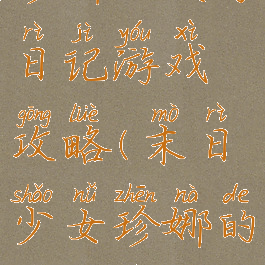 rì jì yóu xì
日记游戏
gōng lüè mò rì
攻略(末日
shǎo nǚ zhēn nà de
少女珍娜的